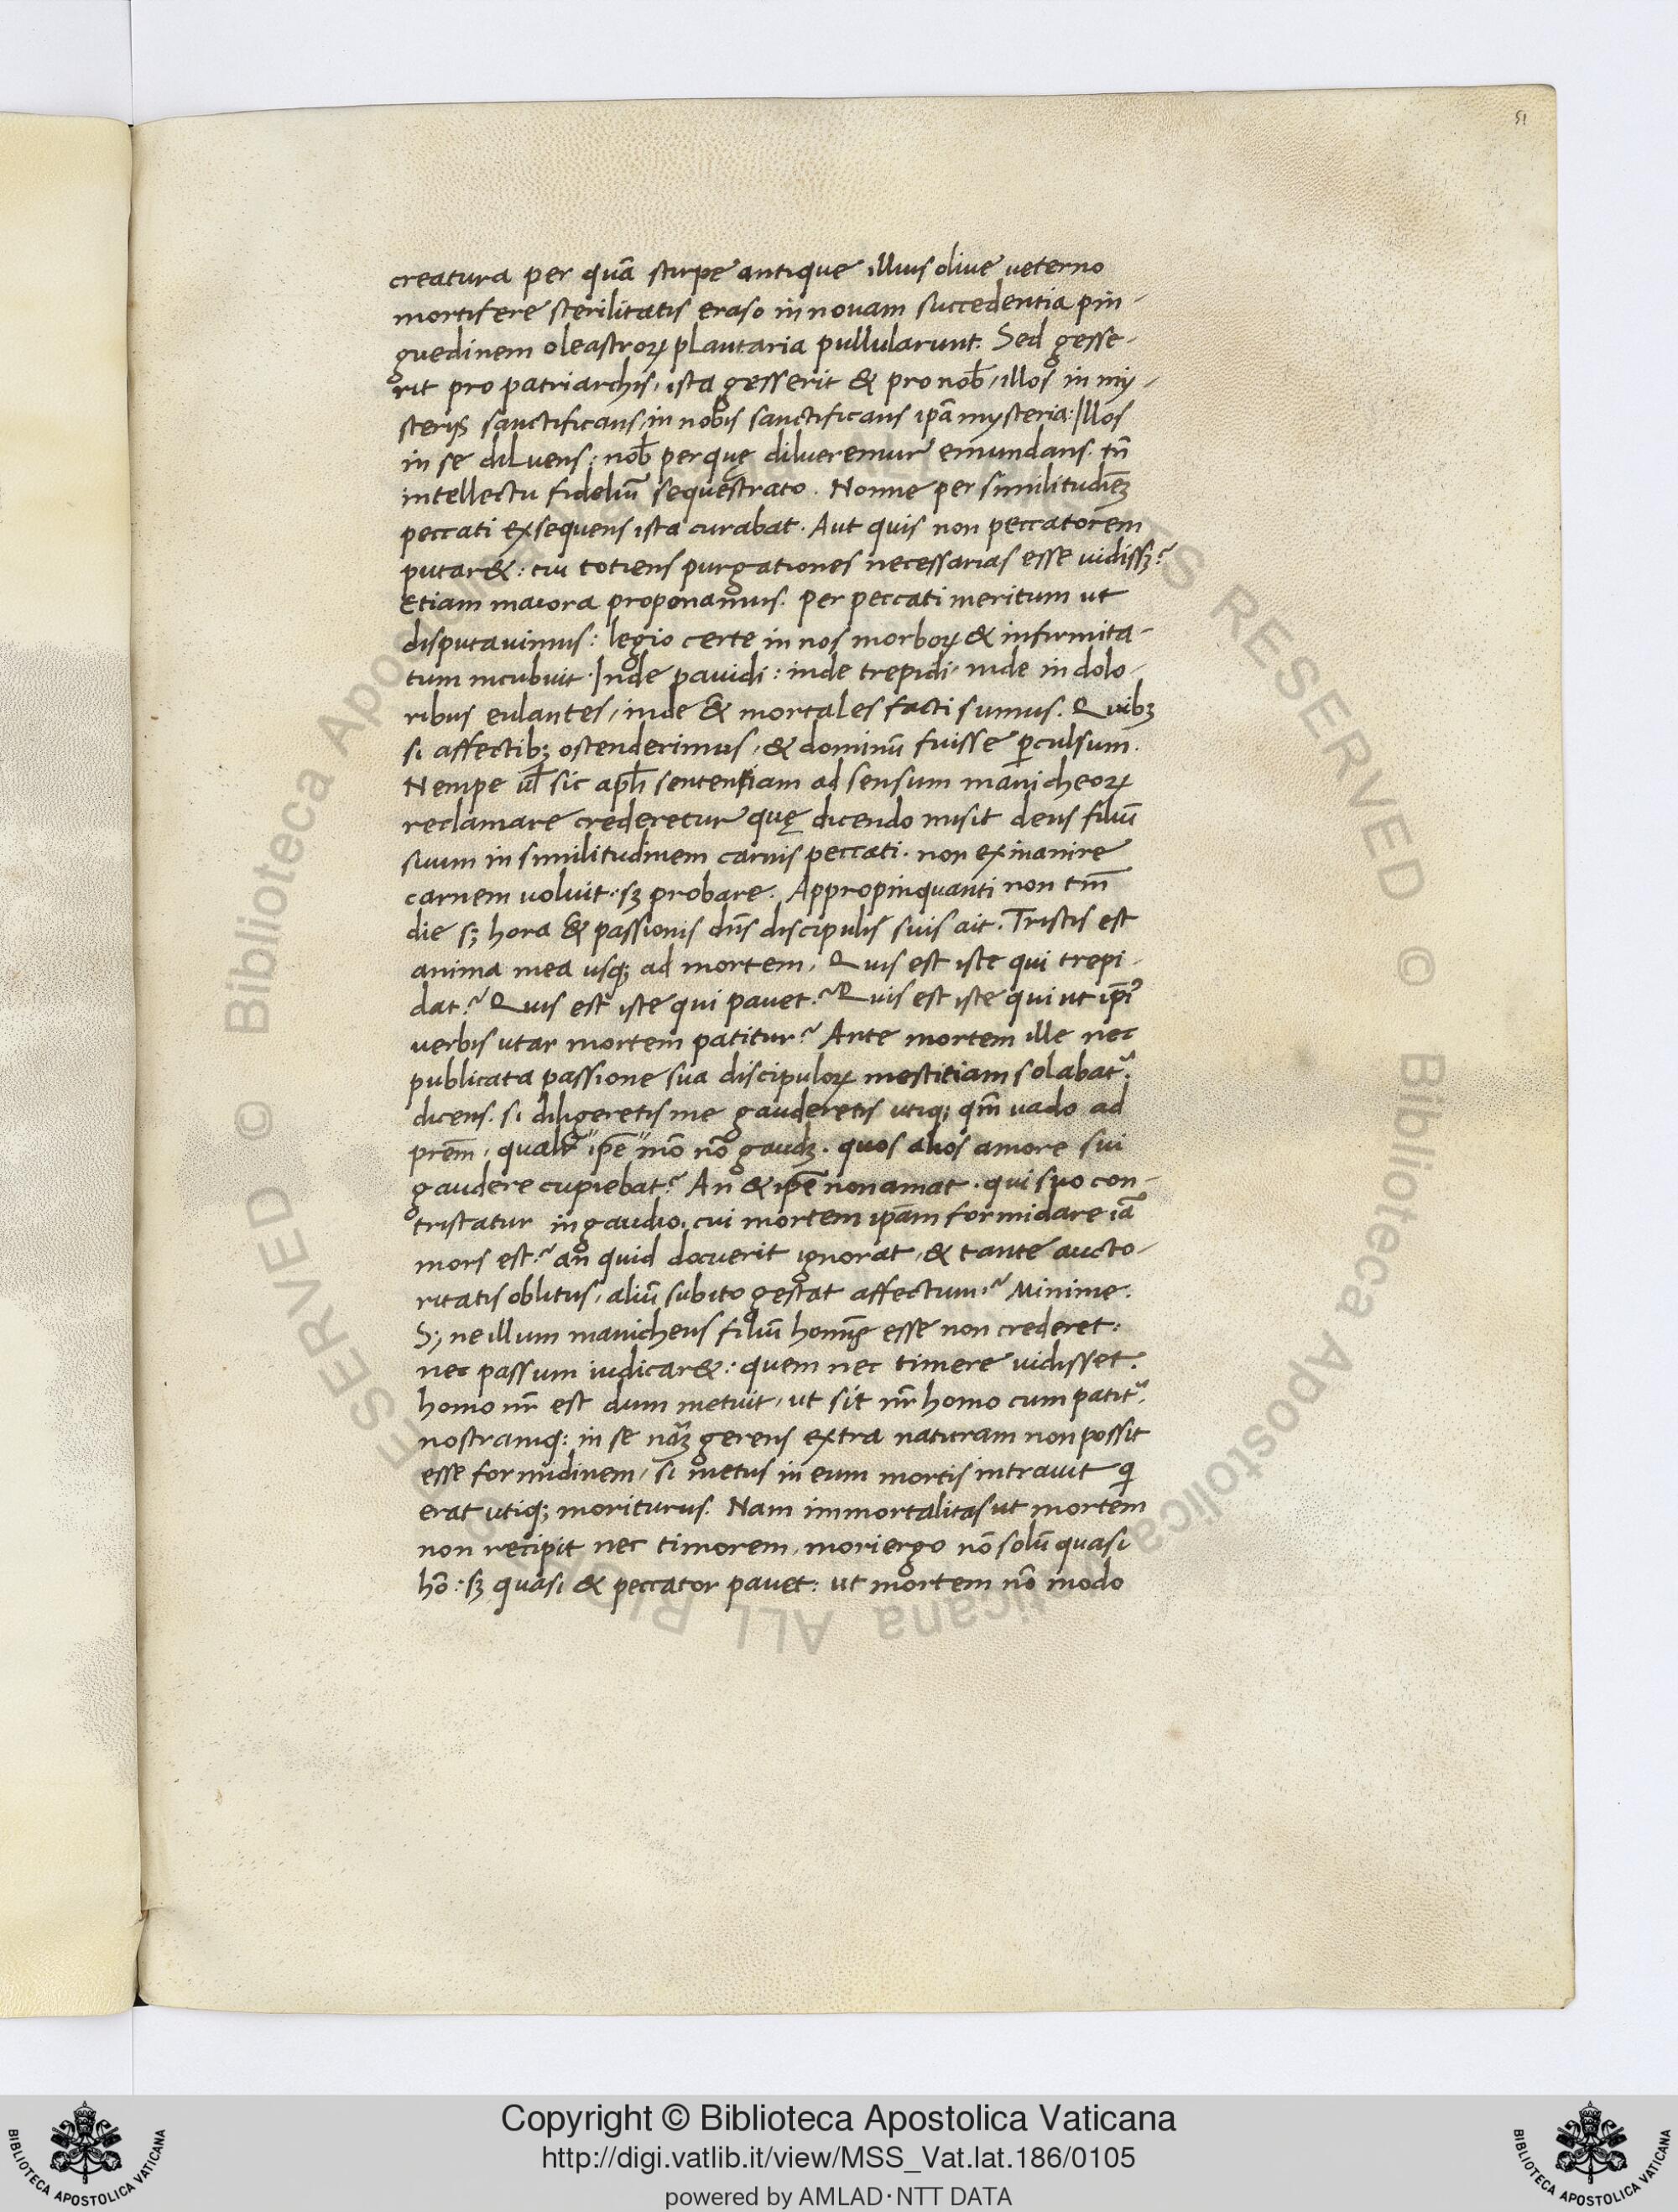 51
creatura per quã stirpe antique illius oliue ueterno
mortifere sterilitatis eraso in nouam succedentia pin-
guedinem oleastroꝝ plantaria pullularunt. Sed gesse-
rit pro patriarchis, ista gesserit & pro nob̃, illos in my-
sterijs sanctificans, in nobis sanctificans ip̃a mysteria: Illos
in se diluens: nob̃ per quę dilueremur emundans. tñ
intellectu fideliũ sequestrato. Nonne per similitudinẽ
peccati exsequens ista curabat. Aut quis non peccatorem
putar&: cui totiens purgationes necessarias esse uidissꝫ?
Etiam maiora proponamus. Per peccati meritum ut
disputauimus: legio certe in nos morboꝝ & infirmita-
tum incubuit. Inde pauidi: inde trepidi, inde in dolo-
ribus eulantes, inde & mortales facti sumus. Quibꝫ
si affectibꝫ ostenderimus, & dominũ fuisse ꝑculsum.
Nempe uł sic apłi sententiam ad sensum manicheoꝝ
reclamare crederetur quę dicendo misit deus filiũ
suum in similitudinem carnis peccati. non exinanire
carnem uoluit. sꝫ probare. Appropinquanti non tm̃
die sꝫ hora & passionis dñs discipulis suis ait. Tristis est
anima mea usqꝫ ad mortem, Quis est iste qui trepi-
dat? Quis est iste qui pauet? Quis est iste qui ut ip̃i
uerbis utar mortem patitur? Ante mortem ille nec
publicata passione sua discipuloꝝ mestitiam solabat᷑
dicens. si diligeretis me gauderetis utiqꝫ qm̃ uado ad
prẽm, qualr̃ "ip̃e" mõ nõ gaudꝫ. quos alios amore sui
gaudere cupiebat? An & ip̃e non amat. qui suo con-
tristatur in gaudio, cui mortem ip̃am formidare iã
mors est? an quid docuerit ignorat, & tante aucto-
ritatis oblitus, aliũ subito gestat affectum? Minime.
Sꝫ ne illum manicheus filiũ hominis esse non crederet:
nec passum iudicar&: quem nec timere uidisset.
homo nr̃ est dum metuit, ut sit nr̃ homo cum patit᷑.
nostramqꝫ in se nãꝫ gerens extra naturam non possit
esse formidinem, si metus in eum mortis intrauit qi
erat utiqꝫ moriturus. Nam immortalitas ut mortem
non recipit nec timorem, mori ergo nõ solũ quasi
hõ: sꝫ quasi & peccator pauet: ut mortem nõ modo
© Biblioteca Apostolica Vaticana ALL RIGHTS RESERVED
Copyright © Biblioteca Apostolica Vaticana
http://digi.vatlib.it/view/MSS_Vat.lat.186/0105
powered by AMLAD·NTT DATA
BIBLIOTECA APOSTOLICA VATICANA
BIBLIOTECA APOSTOLICA VATICANA